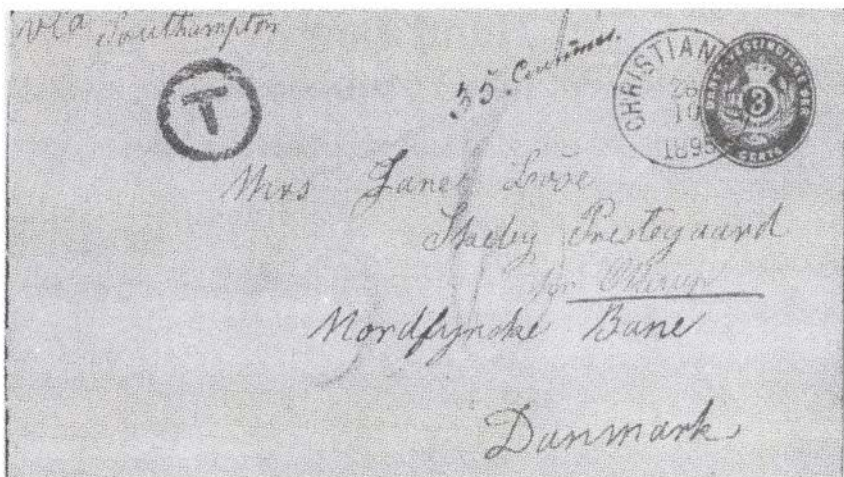 via Southampton
T
35 Centimes.
CHRISTIAN
26
10
1895
3
CENTS
Mrs Janet Love
Skeby Prestegaard
pr Otterup
Nordfynske Bane
Danmark